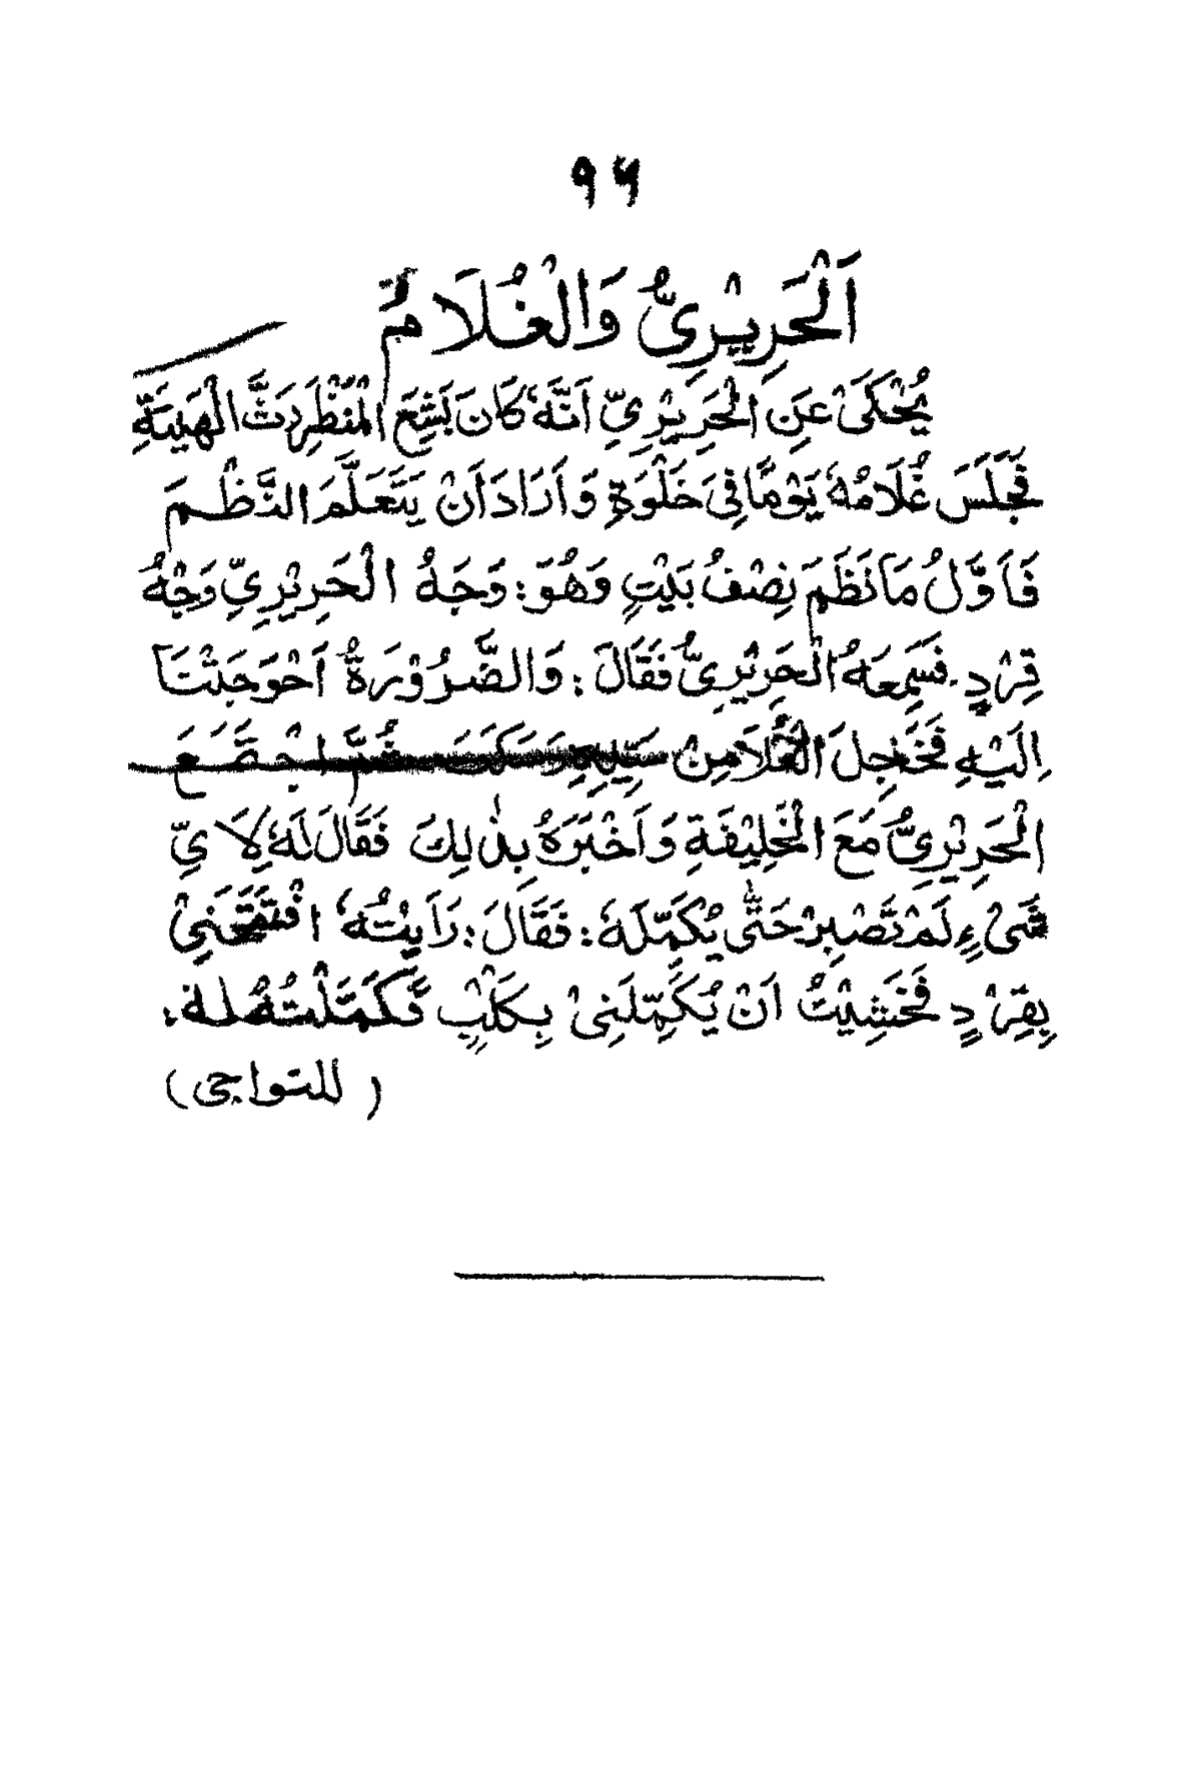 ٩٦
اَلْحَرِيْرِيُّ وَالْغُلَامُ
يُحْكَىٰ عَنِ الْحَرِيْرِيِّ اَنَّهٗ كَانَ بَشِعَ الْمَنْظَرِ رَثَّ الْهَيْئَةِ
فَجَلَسَ غُلَامُهٗ يَوْمًا فِیْ خَلْوَةٍ وَاَرَادَ اَنْ يَتَعَلَّمَ النَّظْمَ
فَاَوَّلُ مَا نَظَمَ نِصْفُ بَيْتٍ وَهُوَ: وَجْهُ الْحَرِيْرِيِّ وَجْهُ
قِرْدٍ. فَسَمِعَهُ الْحَرِيْرِیُّ فَقَالَ: وَالضَّرُوْرَةُ اَحْوَجَتْنَا
اِلَيْهِ فَخَجِلَ الْغُلَامُ مِنْ سَيِّدِهٖ وَسَكَتَ ثُمَّ اجْتَمَعَ
الْحَرِيْرِیُّ مَعَ الْخَلِيْفَةِ وَاَخْبَرَهٗ بِذٰلِكَ فَقَالَ لَهٗ لِاَيِّ
شَیْءٍ لَمْ تَصْبِرْ حَتّٰى يُكَمِّلَهٗ: فَقَالَ: رَاَيْتُهٗ افْتَتَحَنِیْ
بِقِرْدٍ فَخَشِيْتُ اَنْ يُكَمِّلَنِیْ بِكَلْبٍ فَكَمَّلْتُهٗ لَهٗ.
(للنواجی)